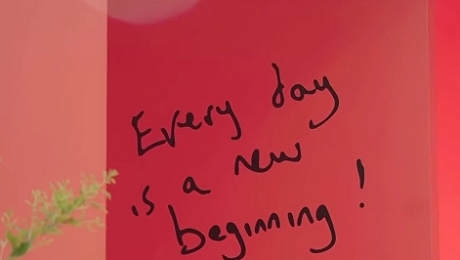 Every day
is a new
beginning!